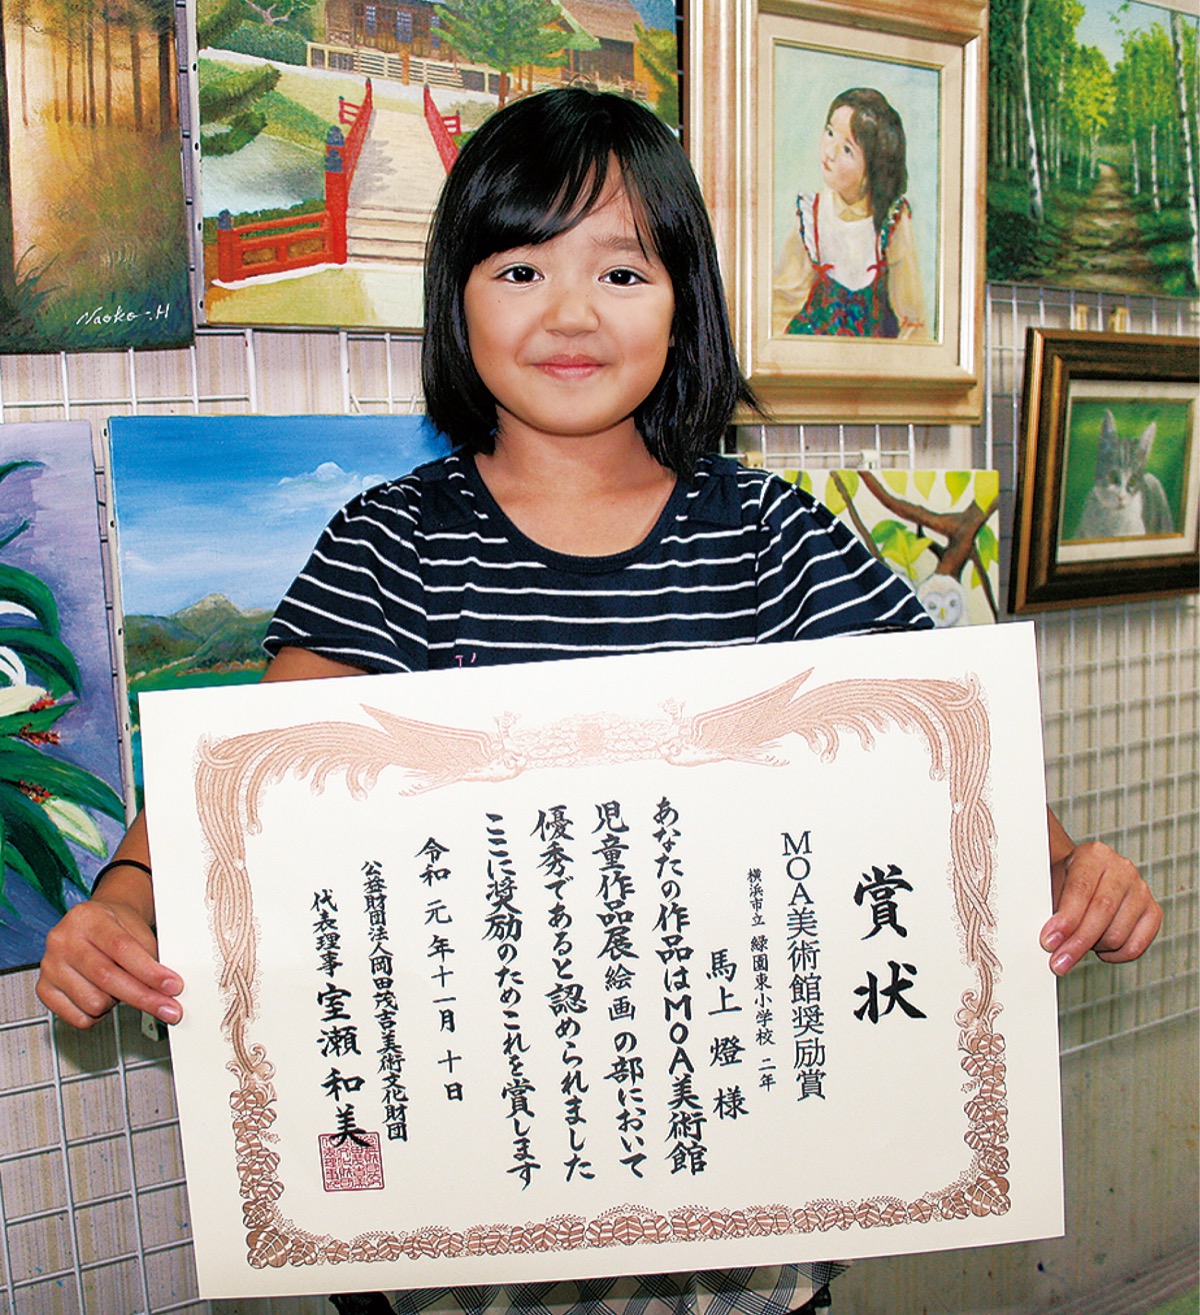 賞状
MOA美術館奨励賞
横浜市立 緑園東小学校 二年
馬上 燈 様
あなたの作品はMOA美術館
児童作品展絵画の部において
優秀であると認められました
ここに奨励のためこれを賞します
令和元年十一月十日
公益財団法人岡田茂吉美術文化財団
代表理事 室瀬和美
Naoko-.H